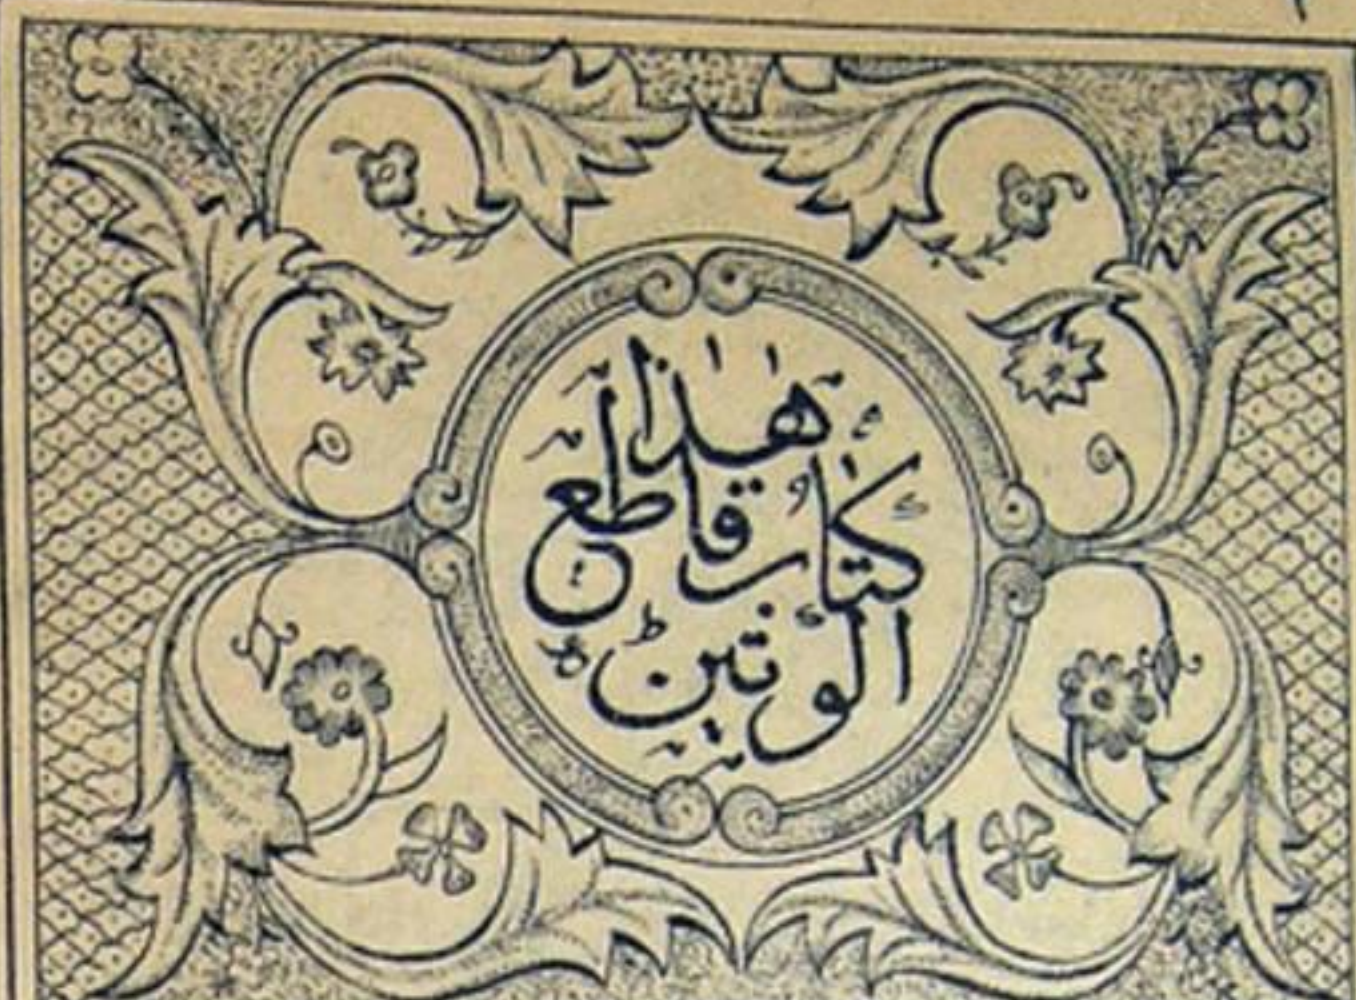 هذا
كتاب قاطع
الوتين